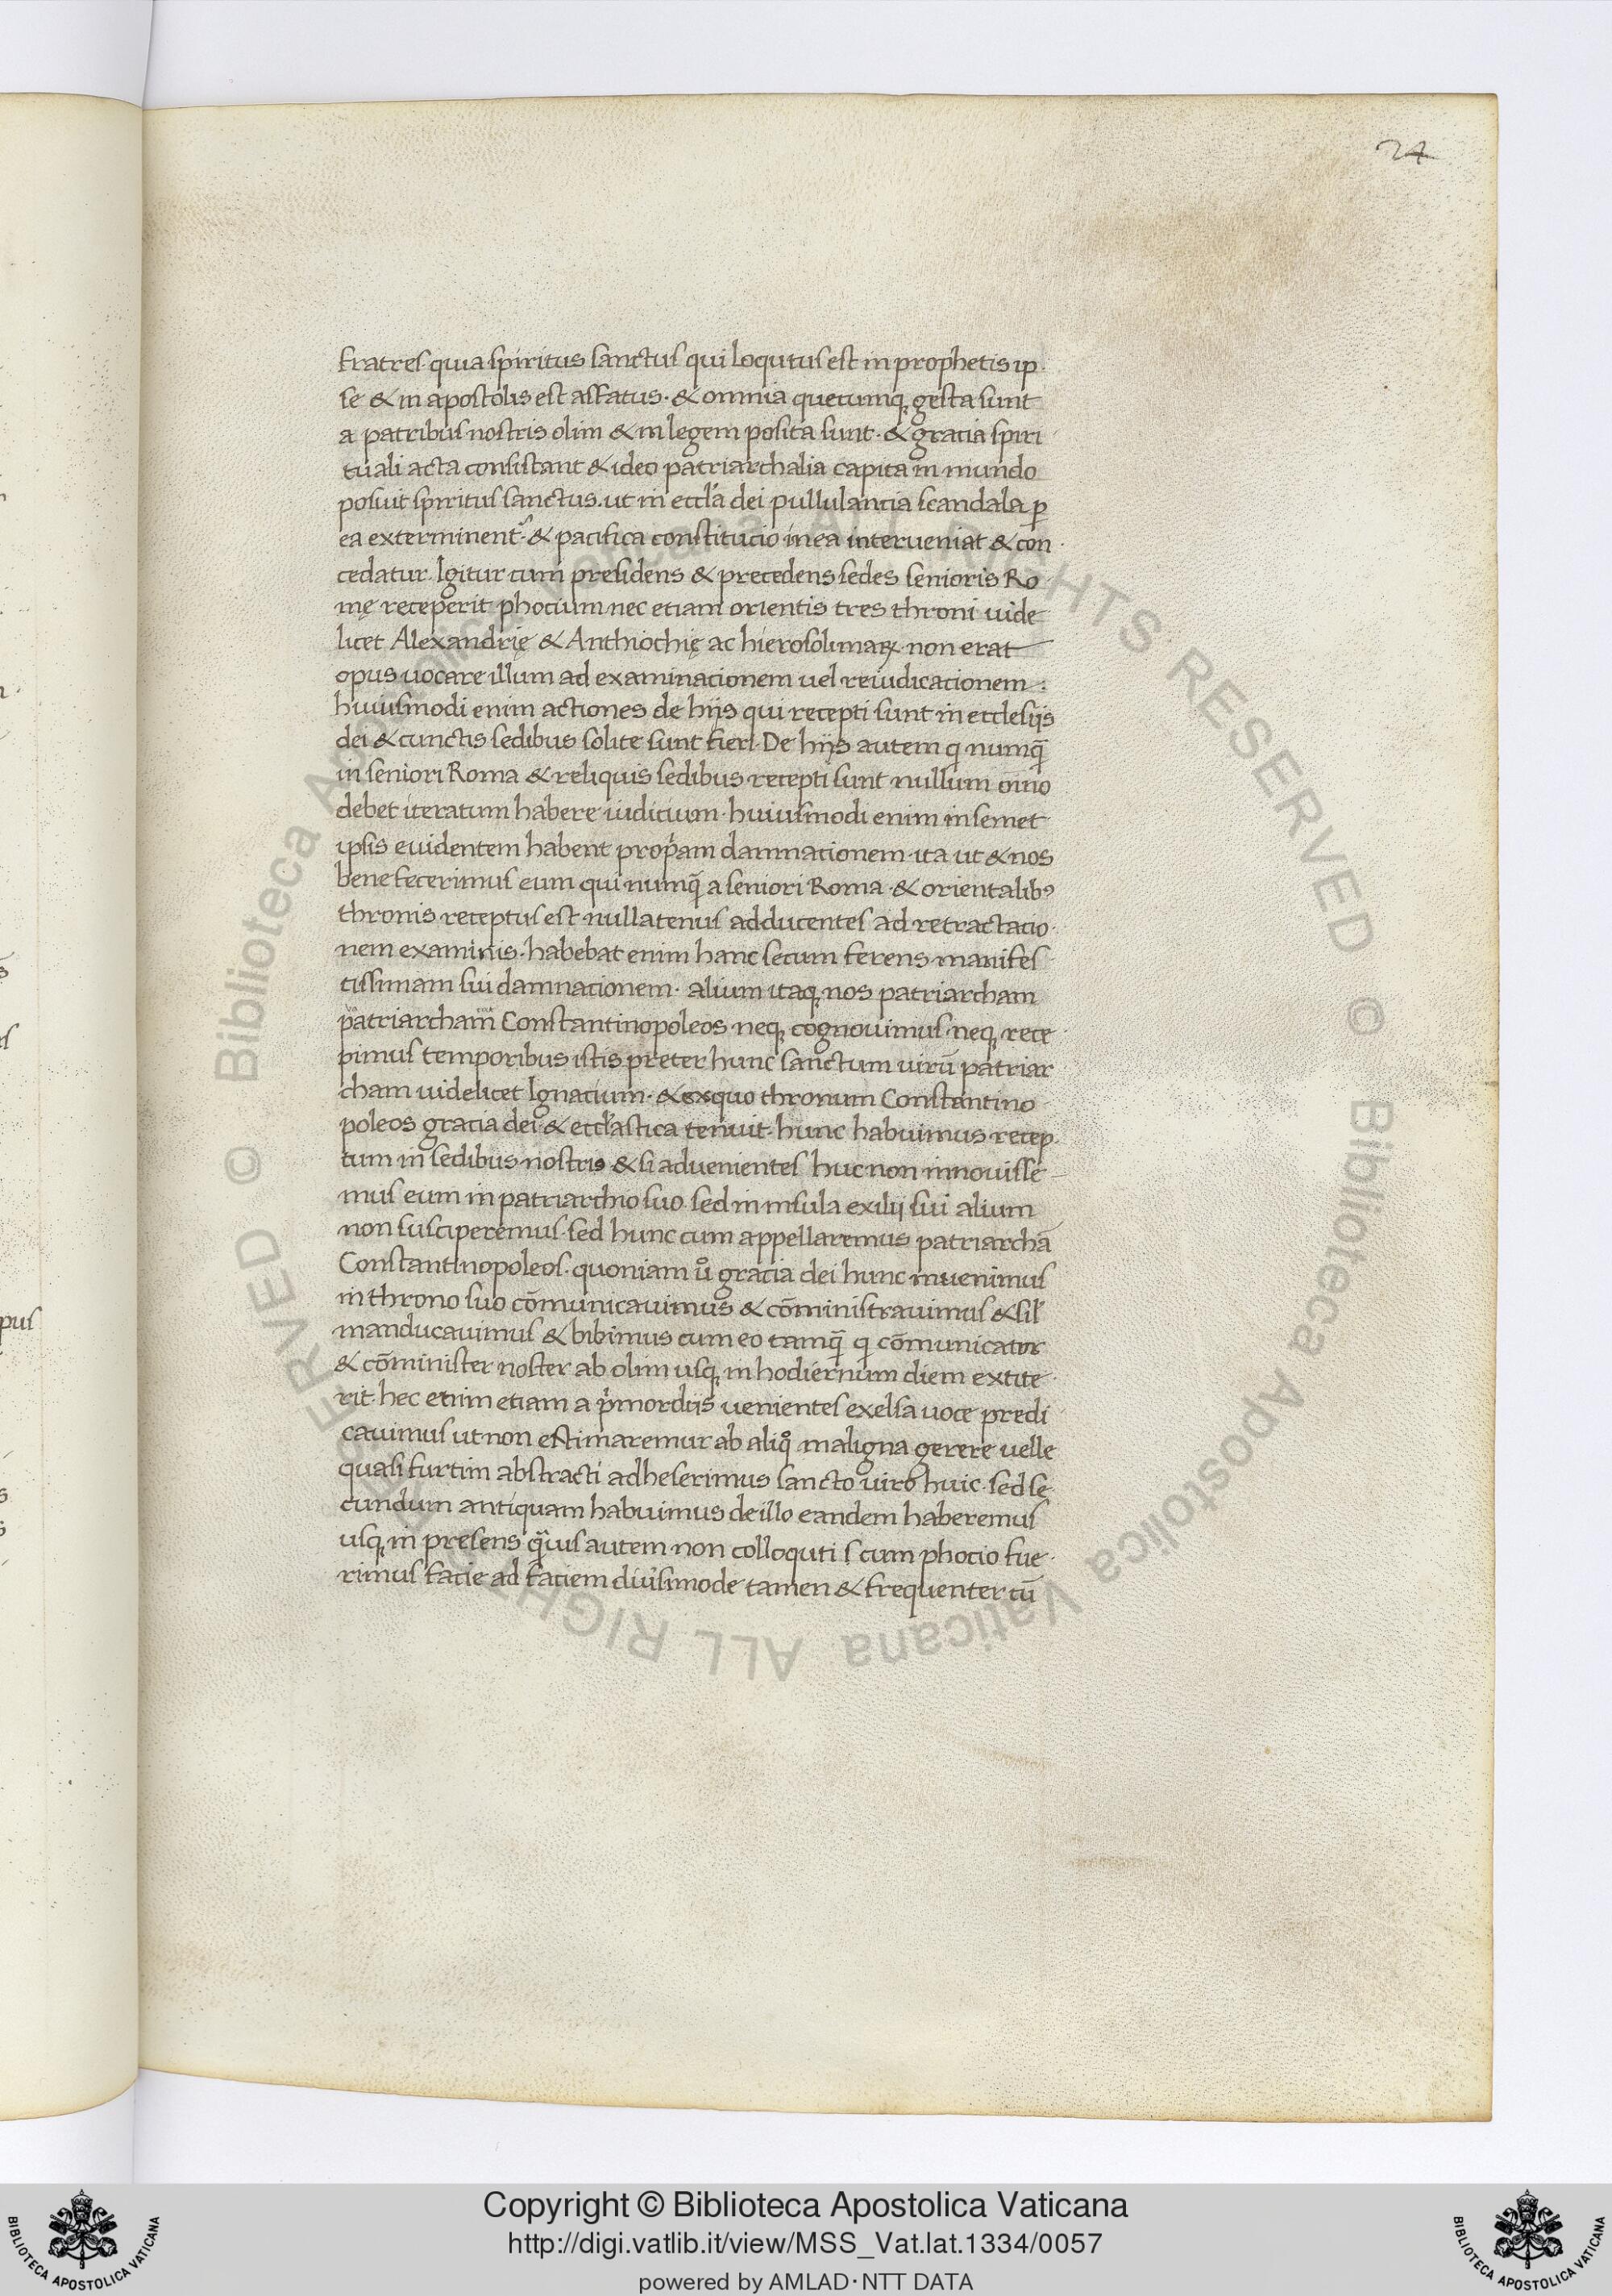 24
fratres quia spiritus sanctus qui loqutus est in prophetis ip
se & in apostolis est affatus. & omnia quecumq; gesta sunt
a patribus nostris olim & in legem posita sunt. & gracia spiri
tuali acta consistant & ideo patriarchalia capita in mundo
posuit spiritus sanctus. ut in eccl'a dei pullulancia scandala ꝑ
ea exterminent᷑. & pacifica constitucio in ea interveniat & con
cedatur. Igitur cum presidens & precedens sedes senioris Ro
mę receperit phocium nec etiam orientis tres throni uide
licet Alexandrię & Anthiochię ac hierosolimaꝝ non erat
opus uocare illum ad examinacionem uel reiudicacionem.
huiusmodi enim actiones de hijs qui recepti sunt in ecclesijs
dei & cunctis sedibus solite sunt fieri. De hijs autem q̄ numq̄
in seniori Roma & reliquis sedibus recepti sunt nullum om̄o
debet iteratum habere iudicium. huiusmodi enim in semet
ipsis euidentem habent prop̄am damnacionem. ita ut & nos
bene fecerimus eum qui numq̄ a seniori Roma. & orientalibꝰ
thronis receptus est nullatenus adducentes ad retractacio
nem examinis. habebat enim hanc secum ferens manifes
tissimam sui damnacionem. alium itaq; nos patriarcham
patriarcham Constantinopoleos neq; cognouimus neq; rece
pimus temporibus istis preter hunc sanctum uirū patriar
cham uidelicet Ignacium. & exquo thronum Constantino
poleos gracia dei & eccl'astica tenuit. hunc habuimus recep
tum in sedibus nostris & si aduenientes huc non innouisse
mus eum in patriarchio suo sed in insula exilij sui alium
non susciperemus. sed hunc cum appellaremus patriarchā
Constantinopoleos. quoniam uͦ gracia dei hunc inuenimus
in throno suo cōmunicauimus & cōministrauimus & sil'
manducauimus & bibimus cum eo tamq̄ q̄ cōmunicator
& cōminister noster ab olim usq; in hodiernum diem extite
rit. hec enim etiam a p̍mordiis uenientes exelsa uoce predi
cauimus ut non estimaremur ab aliqͦ maligna gerere uelle
quasi furtim abstracti adheserimus sancto uiro huic. sed se
cundum antiquam habuimus de illo eandem haberemus
usq; in presens q̄uis autem non colloquti s cum phocio fue
rimus facie ad faciem diu'simode tamen & frequenter cū
© Biblioteca Apostolica Vaticana ALL RIGHTS RESERVED © Biblioteca Apostolica Vaticana ALL RIGHTS RESERVED
BIBLIOTECA APOSTOLICA VATICANA
Copyright © Biblioteca Apostolica Vaticana
http://digi.vatlib.it/view/MSS_Vat.lat.1334/0057
powered by AMLAD·NTT DATA
BIBLIOTECA APOSTOLICA VATICANA